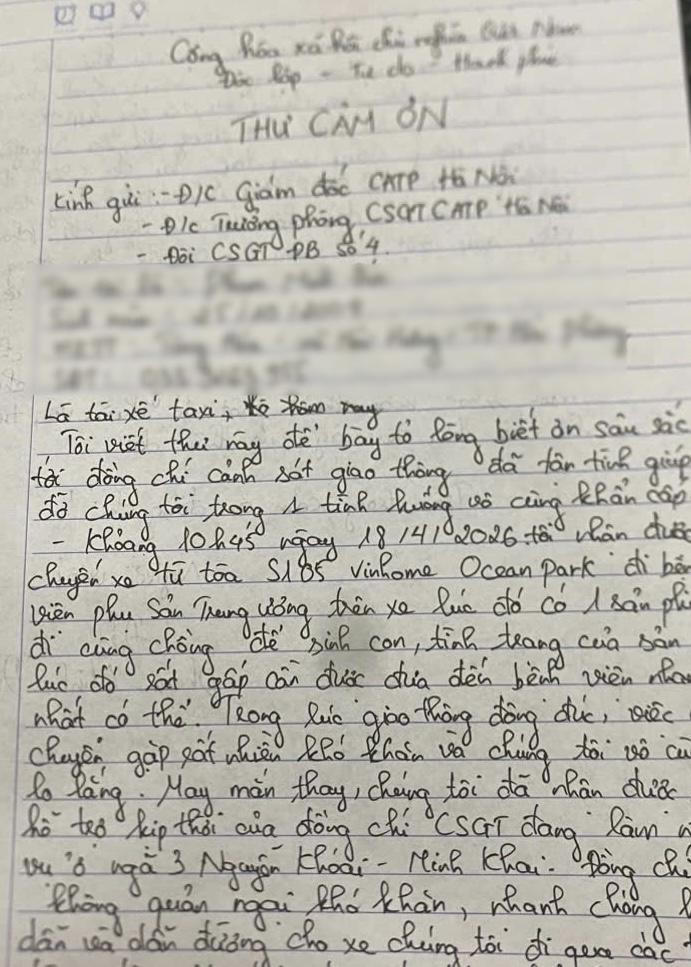 Cộng hòa xã hội chủ nghĩa Việt Nam
Độc lập - Tự do - Hạnh phúc
THƯ CẢM ƠN
Kính gửi: - Đ/C Giám đốc CATP Hà Nội
- Đ/c Trưởng phòng CSGT CATP Hà Nội
- Đội CSGT ĐB số 4.
Là tài xế taxi,
Tôi viết thư này để bày tỏ lòng biết ơn sâu sắc
tới đồng chí cảnh sát giao thông đã tận tình giúp
đỡ chúng tôi trong 1 tình huống vô cùng khẩn cấp
- Khoảng 10h45 ngày 18/4/2026 tôi nhận được
chuyến xe từ tòa S105 Vinhome Ocean park đi bện
viện phụ sản Trung ương trên xe lúc đó có 1 sản ph
đi cùng chồng để sinh con, tình trạng của sản
lúc đó rất gấp cần được đưa đến bệnh viện nha
nhất có thể. Trong lúc giao thông đông đúc, việc
chuyển gặp rất nhiều khó khăn và chúng tôi vô cù
lo lắng. May mắn thay, chúng tôi đã nhận được
hỗ trợ kịp thời của đồng chí CSGT đang làm n
vụ ở ngã 3 Nguyễn Khoái - Minh Khai. Đồng chí
không quản ngại khó khăn, nhanh chóng
dẫn và dẫn đường cho xe chúng tôi đi qua các